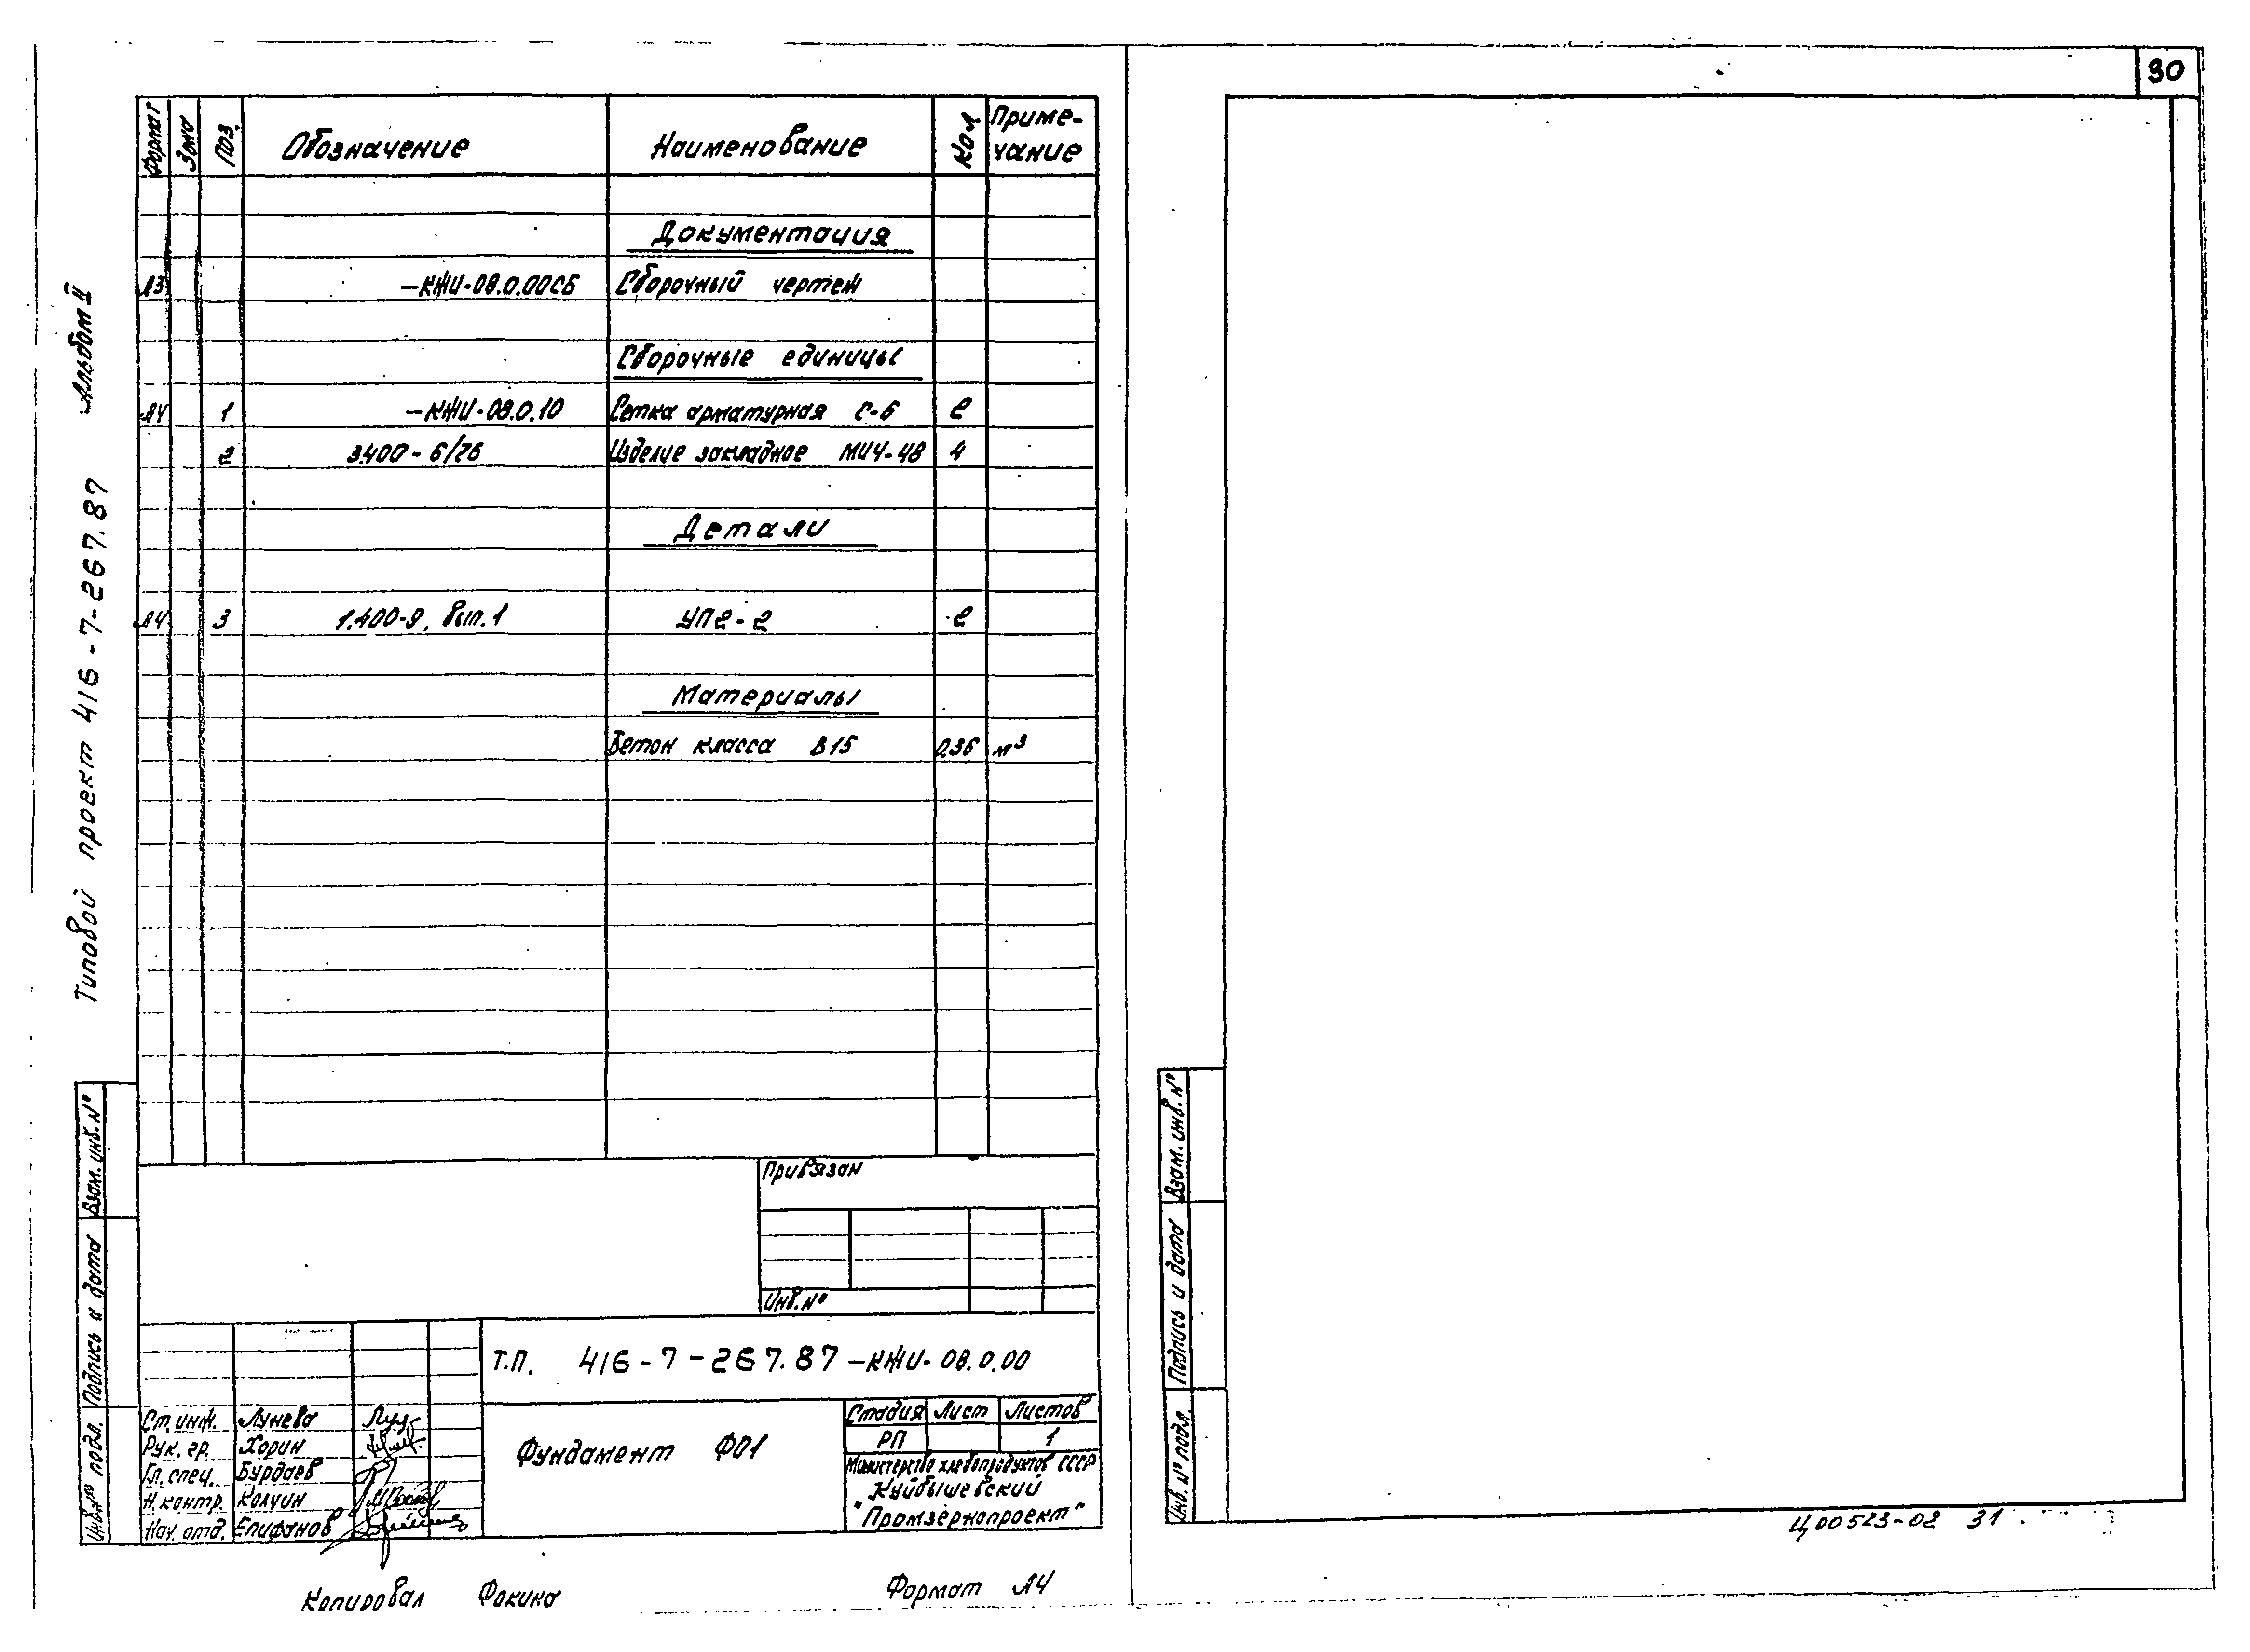 30
Формат Зона Поз. Обозначение Наименование Кол Приме-
чание
Документация
А3 –КЖИ-08.0.00СБ Сборочный чертеж
Сборочные единицы
А4 1 –КЖИ-08.0.10 Сетка арматурная С-6 2
2 3.400-6/76 Изделие закладное МИ4-48 4
Детали
А4 3 1.400-9, вып.1 УП2-2 2
Материалы
Бетон класса В15 0,36 м³
Типовой проект 416-7-267.87 Альбом II
Привязан
Инв.№
Взам. инв. №
Подпись и дата
Инв.№ подл.
Т.П. 416-7-267.87-КЖИ-08.0.00
Ст. инж. Лунева
Рук. гр. Хорин
Гл. спец. Бурдаев
Н. контр. Колчин
Нач. отд. Епифанов
Фундамент Ф01
Стадия Лист Листов
РП 1
Министерство хлебопродуктов СССР
Куйбышевский
"Промзернопроект"
Копировал Фокина Формат А4
Взам. инв. №
Подпись и дата
Инв. № подл.
Ц00523-02 31